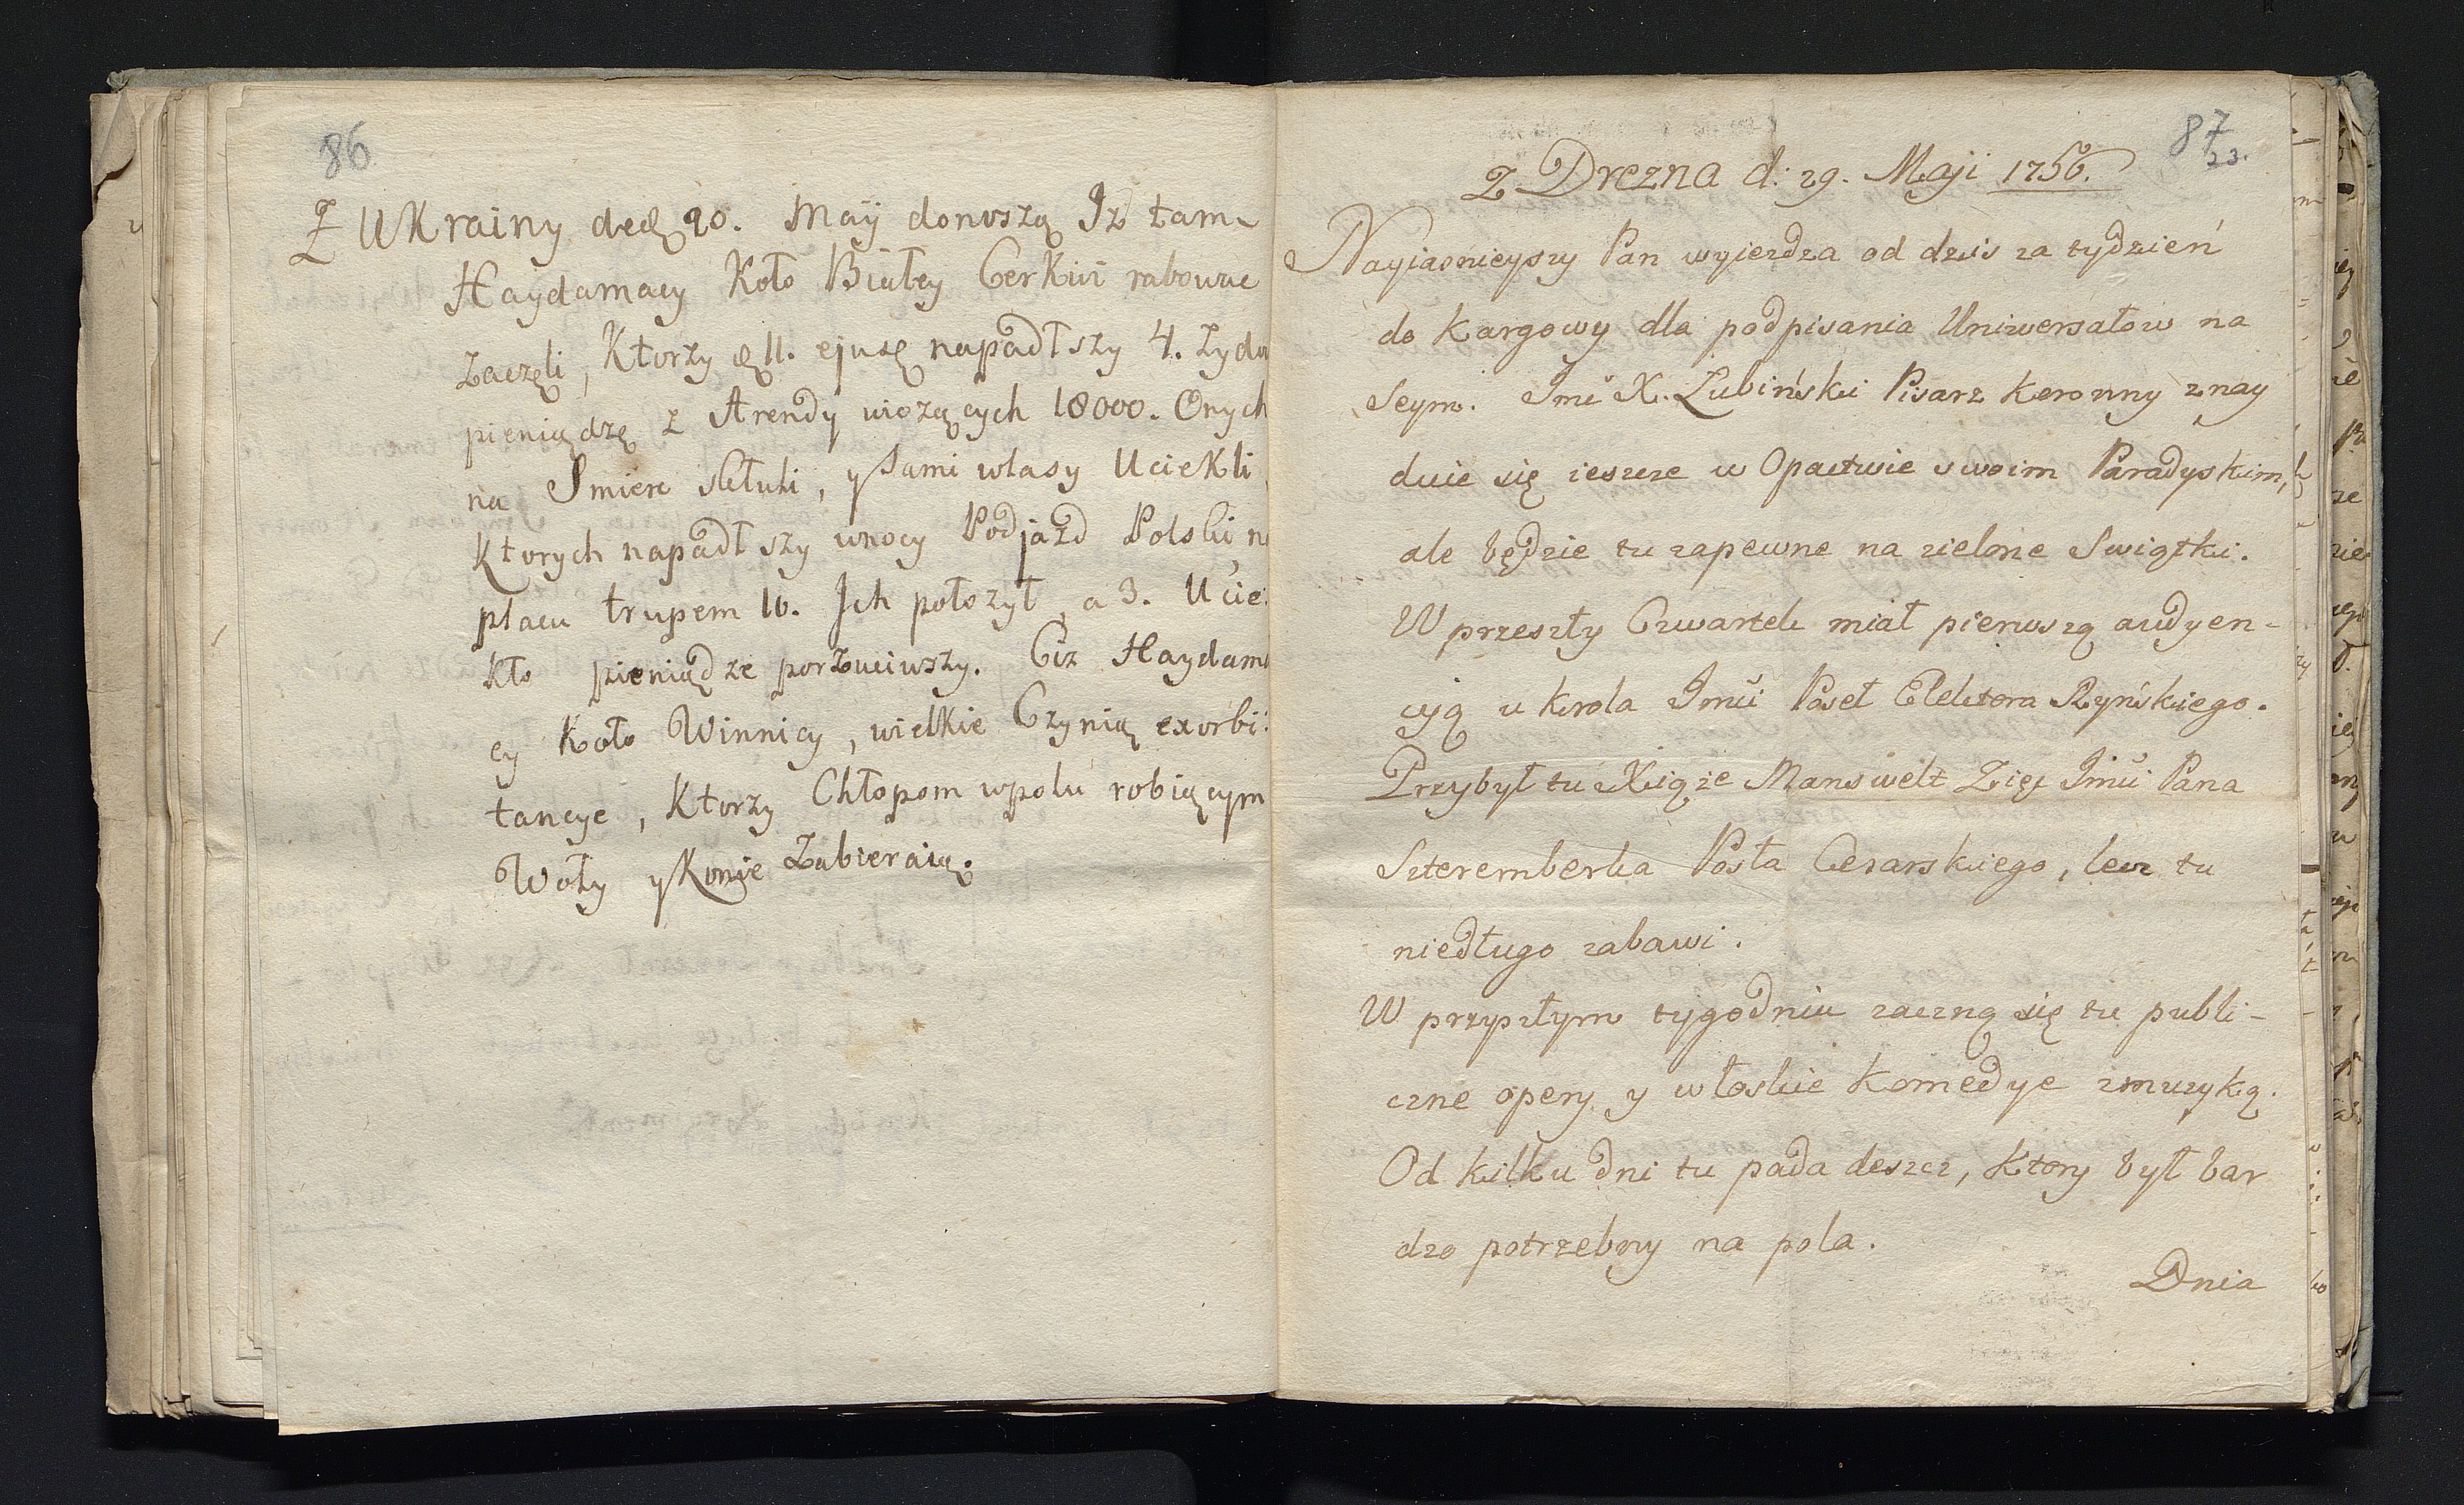 86
Z UKrainy 20. Maÿ donoszą Iż tam
Haydamacy Koło Białey CerKwi rabowac
zaczęli, Ktorzy 11. ejusę napadłszy 4. Zydo
pieniądzę z Arendy wiozących 18000. Onych
na Smierc skłuli, y sami wlasy UcieKli
Ktorych napadłszy wnocy Podjazd Polski na
placu trupem 16. Jch położył, a 3. Ucie:
Kło pieniądze porzuciwszy. Ciz Haydam
cy Koło Winnicy, wielkie Czynią exorbi:
tancye, Ktorzy Chłopom wpolu robiącym
Woły y Konie Zabieraią.
87
23.
Z Drezna d: 29. Maji 1756.
Nayiasnieyszy Pan wyiezdza od dzis za tydzień
do Kargowy dla podpisania Uniwersałow na
Seym. Jmć X. Łubiński Pisarz Koronny znay
duie się ieszcze w Opactwie swoim Paradyskim,
ale będzie tu zapewne na zielone Swiątki.
W przeszły Czwartek miał pierwszą audyen-
cyą u Krola Jmći Poseł Elektora Ryńskiego.
Przybył tu Xiąże Manswelt Zięć Jmći Pana
Szteremberka Posła Cesarskiego, lecz tu
niedługo zabawi.
W przyszłym tygodniu zaczną się tu publi-
czne opery y włoskie Komedye zmuzyką.
Od kilku dni tu pada deszcz, Ktory był bar
dzo potrzebny na pola.
Dnia